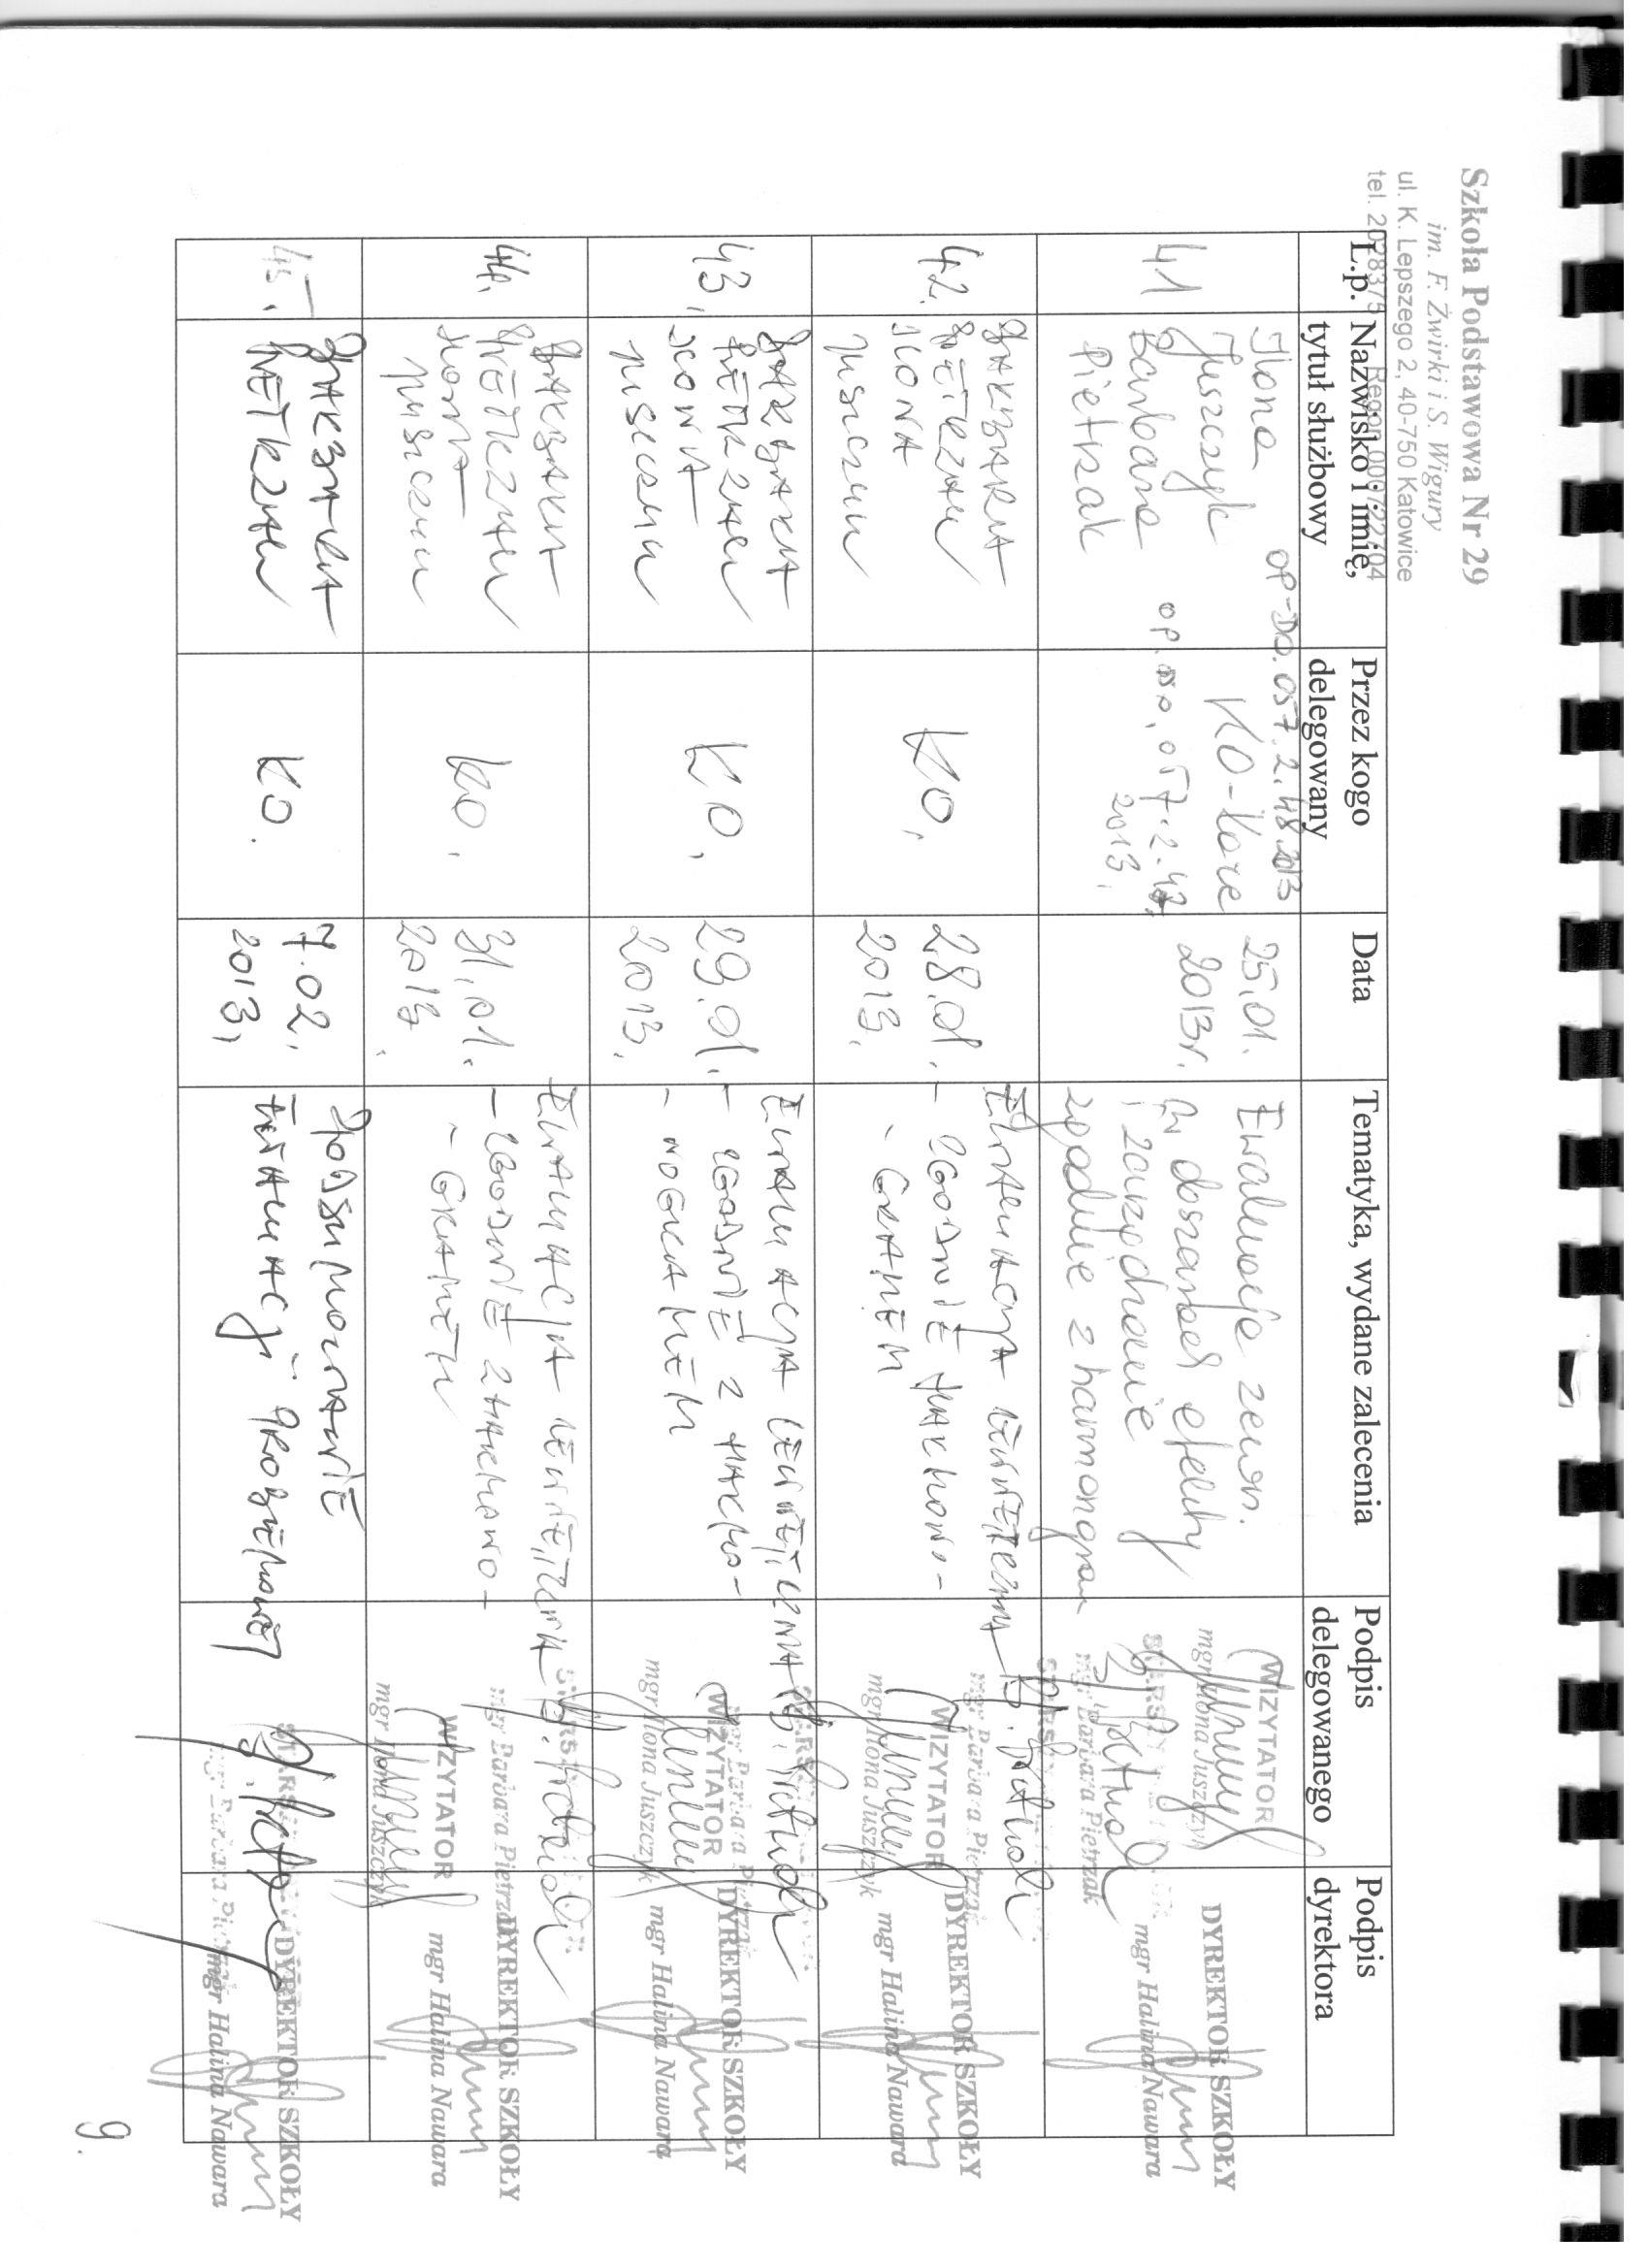 Szkoła Podstawowa Nr 29
im. F. Żwirki i S. Wigury
ul. K. Lepszego 2, 40-750 Katowice
L.p.
Nazwisko i imię,
tytuł służbowy
Przez kogo
delegowany
Data
Tematyka, wydane zalecenia
Podpis
delegowanego
Podpis
dyrektora
41
Ilona
Juszczyk
Barbara
Pietrzak
OP-DO.057.2.48.2013
KO-Katowice
2013.
25.01.
2013r.
Ewaluacja zewn.
w obszarze efekty
i zarządzanie
zgodnie z harmonogram
WIZYTATOR
mgr Ilona Juszczyk
mgr Barbara Pietrzak
DYREKTOR SZKOŁY
mgr Halina Nawara
42.
BARBARA
PIETRZAK
ILONA
JUSZCZYK
KO.
28.01.
2013.
EWALUACJA ZEWNĘTRZNA
- ZGODNIE Z HARMONO-
- GRAMEM
mgr Barbara Pietrzak
WIZYTATOR
mgr Ilona Juszczyk
DYREKTOR SZKOŁY
mgr Halina Nawara
43.
BARBARA
PIETRZAK
ILONA
JUSZCZYK
KO.
29.01.
2013.
EWALUACJA ZEWNĘTRZNA
- ZGODNIE Z HARMO-
- NOGRAMEM
mgr Barbara Pietrzak
WIZYTATOR
mgr Ilona Juszczyk
DYREKTOR SZKOŁY
mgr Halina Nawara
44.
BARBARA
PIETRZAK
ILONA
JUSZCZYK
KO.
31.01.
2013.
EWALUACJA ZEWNĘTRZNA
- ZGODNIE Z HARMONO-
- GRAMEM
mgr Barbara Pietrzak
WIZYTATOR
mgr Ilona Juszczyk
DYREKTOR SZKOŁY
mgr Halina Nawara
45.
BARBARA
PIETRZAK
KO.
7.02.
2013.
PODSUMOWANIE
EWALUACJI PROBLEMOWEJ
DYREKTOR SZKOŁY
mgr Halina Nawara
9.